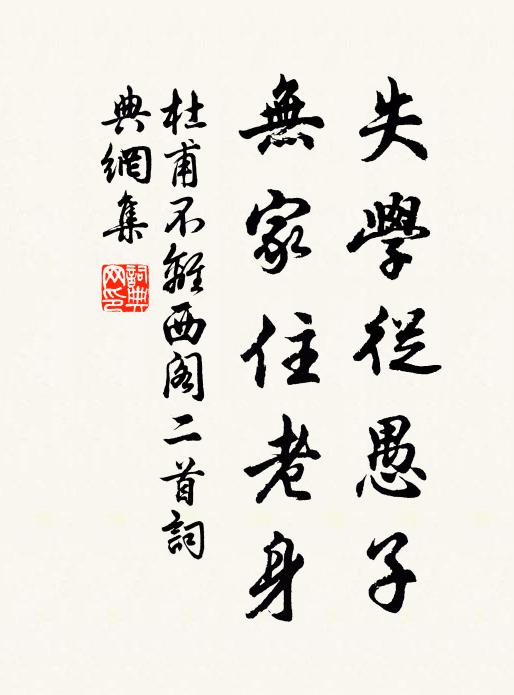 失學從愚子
無家住老身
杜甫不離西閣二首詞
典網集
詞典网印